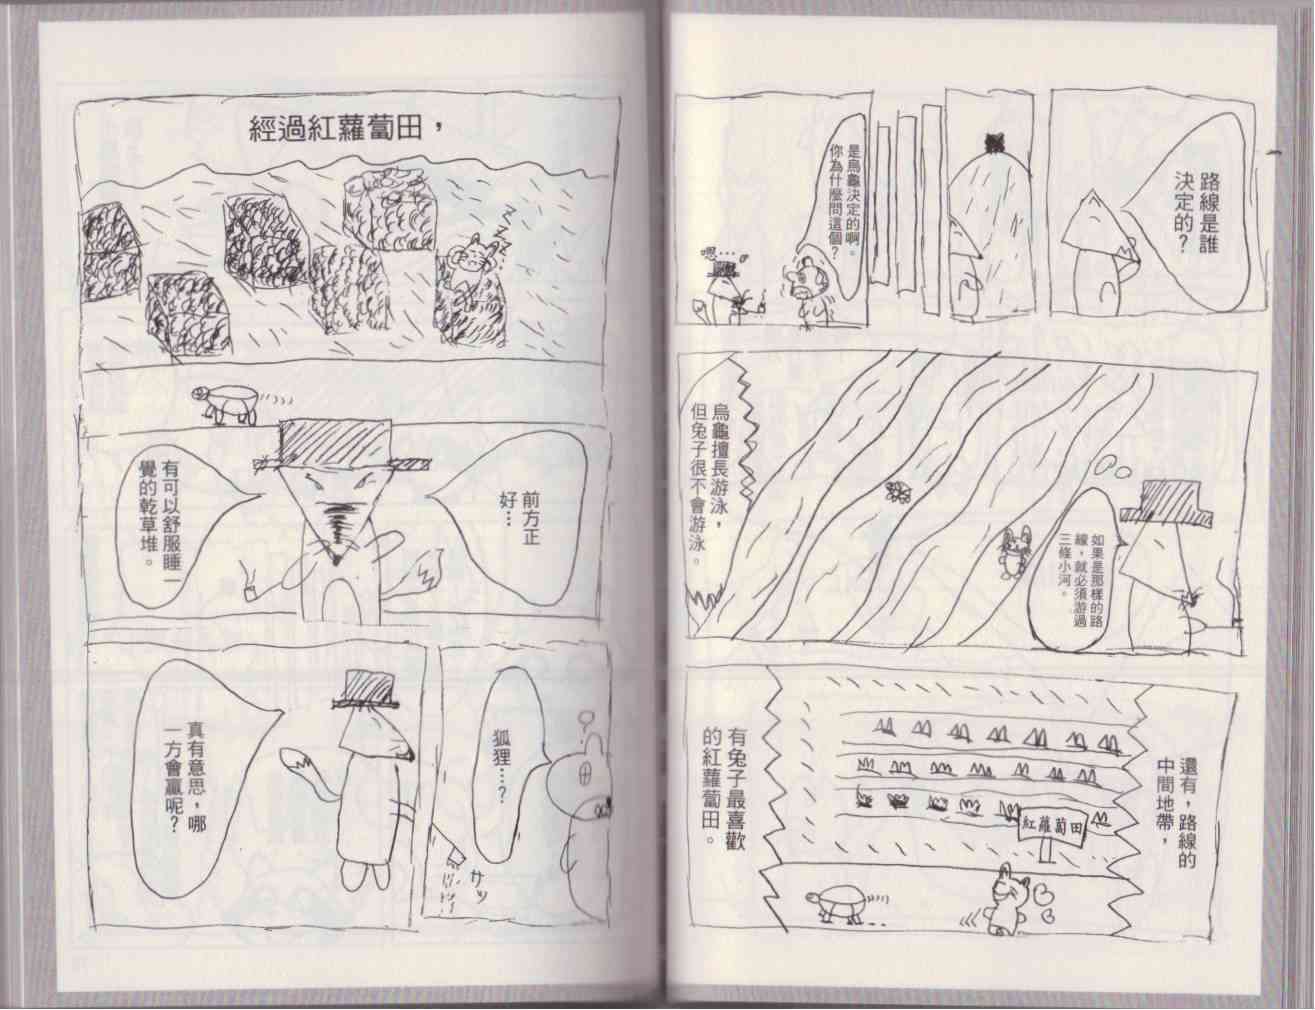 路線是誰
決定的？
是烏龜決定的啊。
你為什麼問這個？
嗯…
如果是那樣的路
線，就必須游過
三條小河。
烏龜擅長游泳，
但兔子很不會游泳。
還有，路線的
中間地帶，
紅蘿蔔田
有兔子最喜歡
的紅蘿蔔田。
經過紅蘿蔔田，
ZZZZ...
前方正
好…
有可以舒服睡一
覺的乾草堆。
狐狸…？
サッ
真有意思，哪
一方會贏呢？